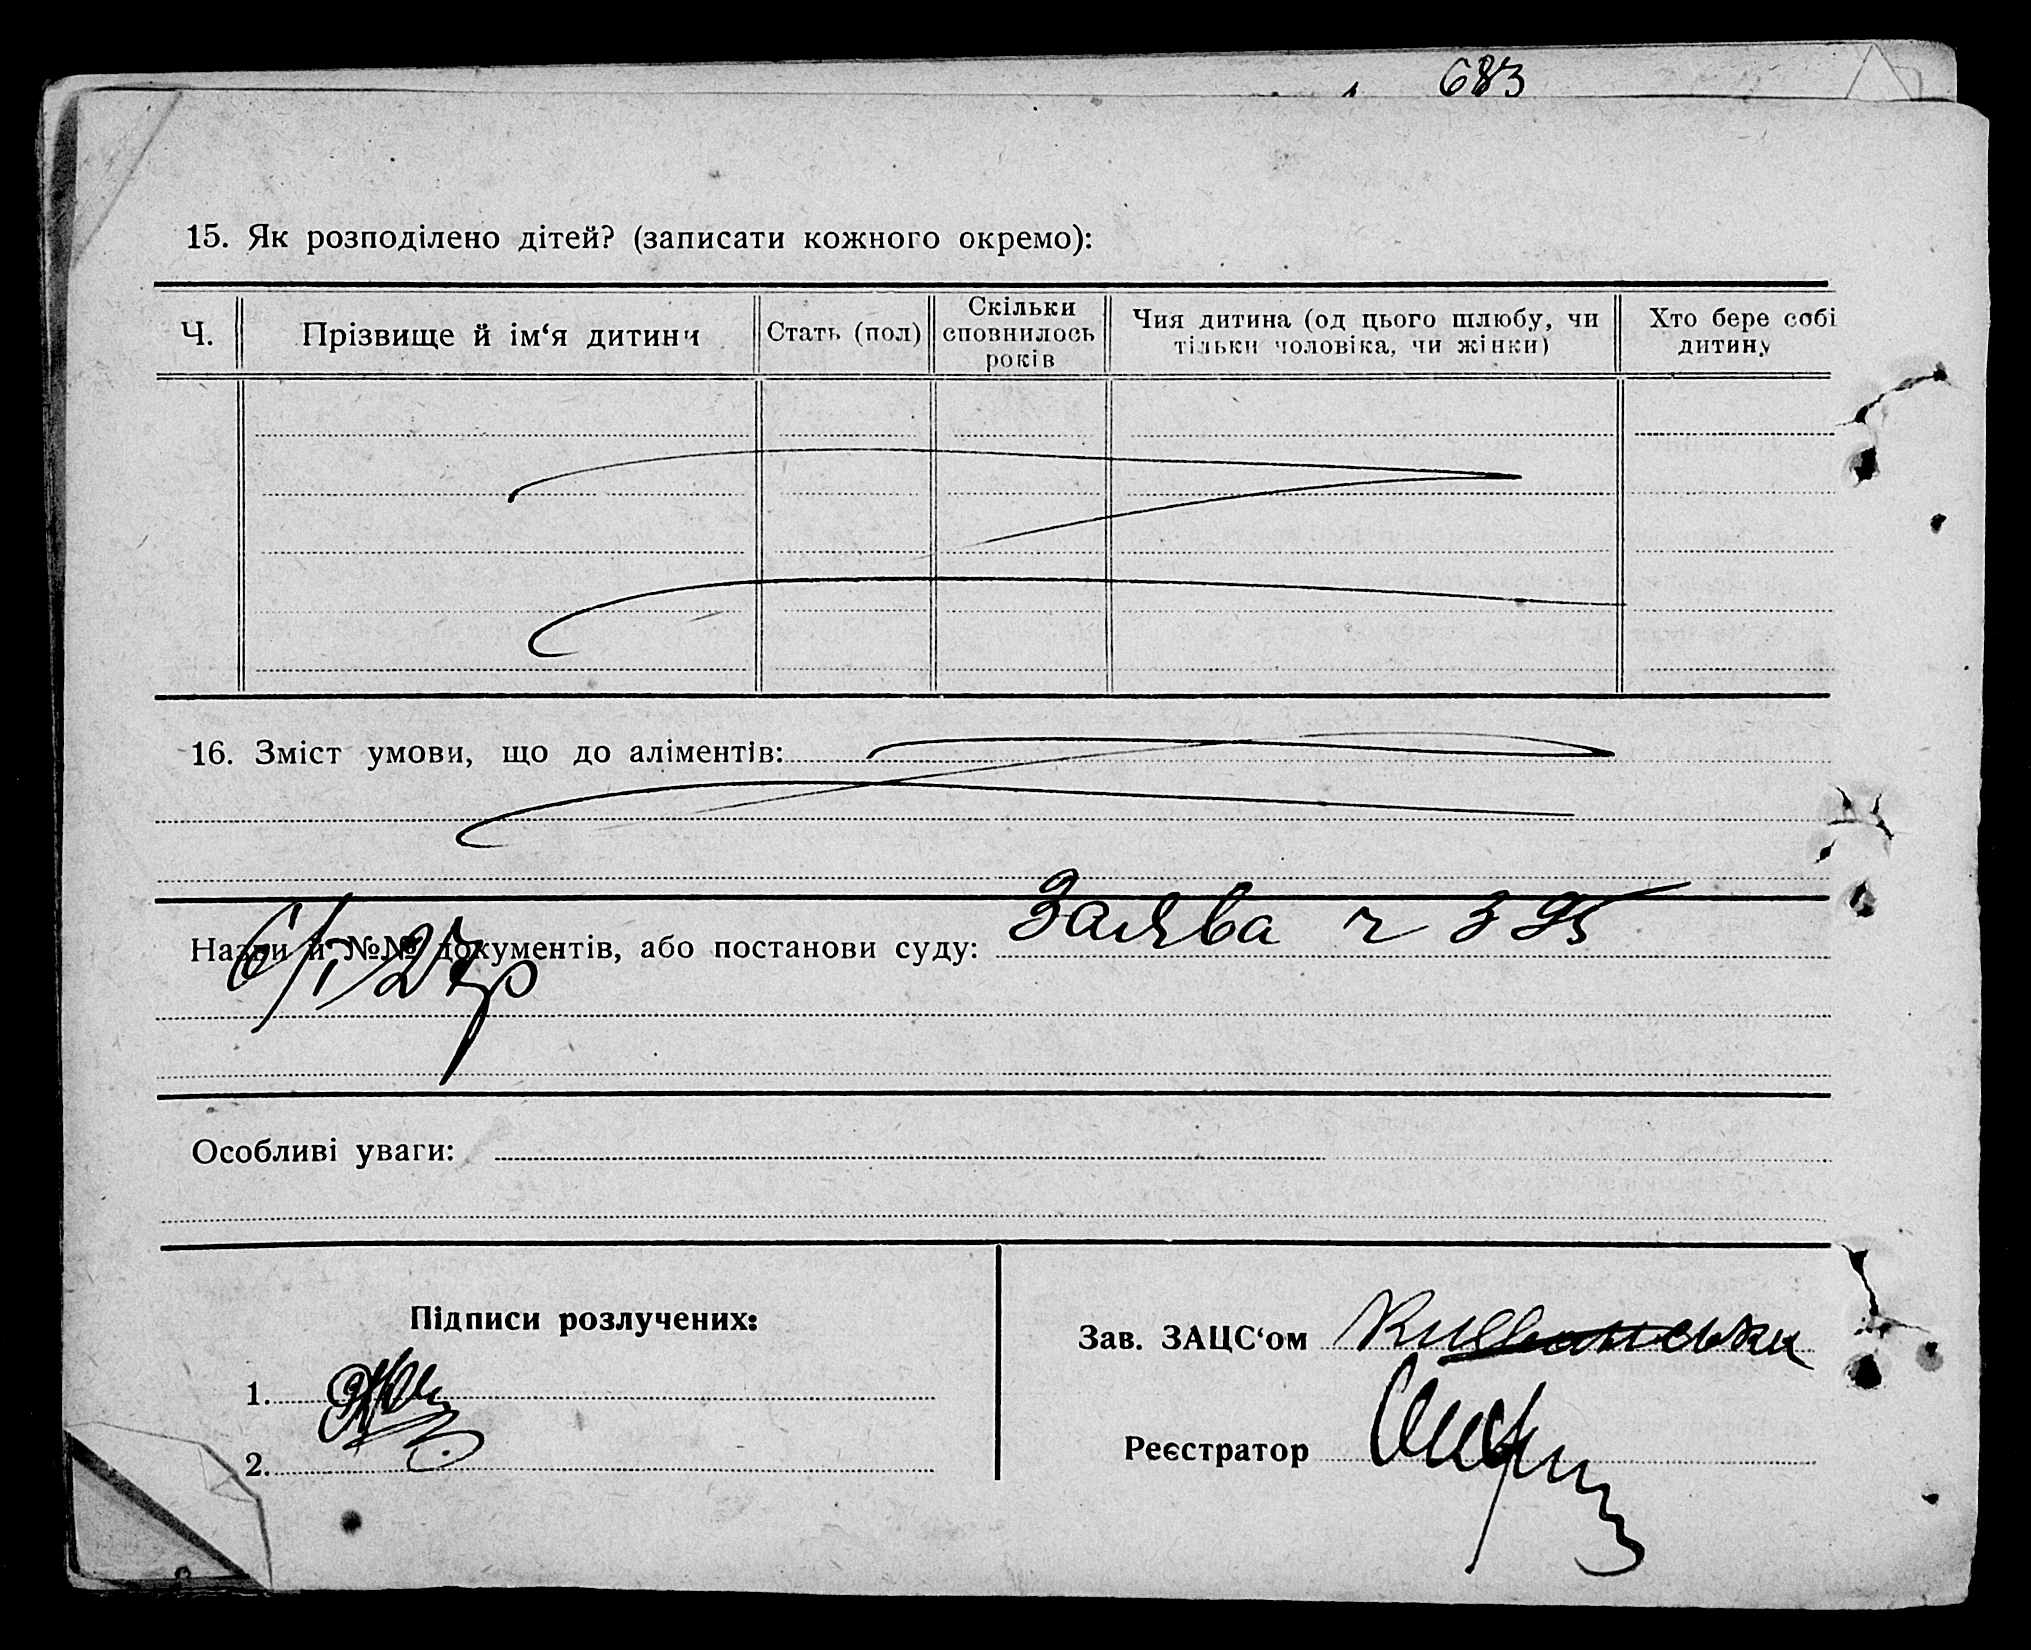 683
15. Як розподілено дітей? (записати кожного окремо):
Ч.
Прізвище й ім‘я дитини
Стать (пол)
Скільки
сповнилось
років
Чия дитина (од цього шлюбу, чи
тільки чоловіка, чи жінки)
Хто бере собі
дитину
16. Зміст умови, що до аліментів:
Назви й №№ документів, або постанови суду: Заява ч 395
6/I 27р
Особливі уваги:
Підписи розлучених:
1.
2.
Зав. ЗАЦС‘ом
Реєстратор